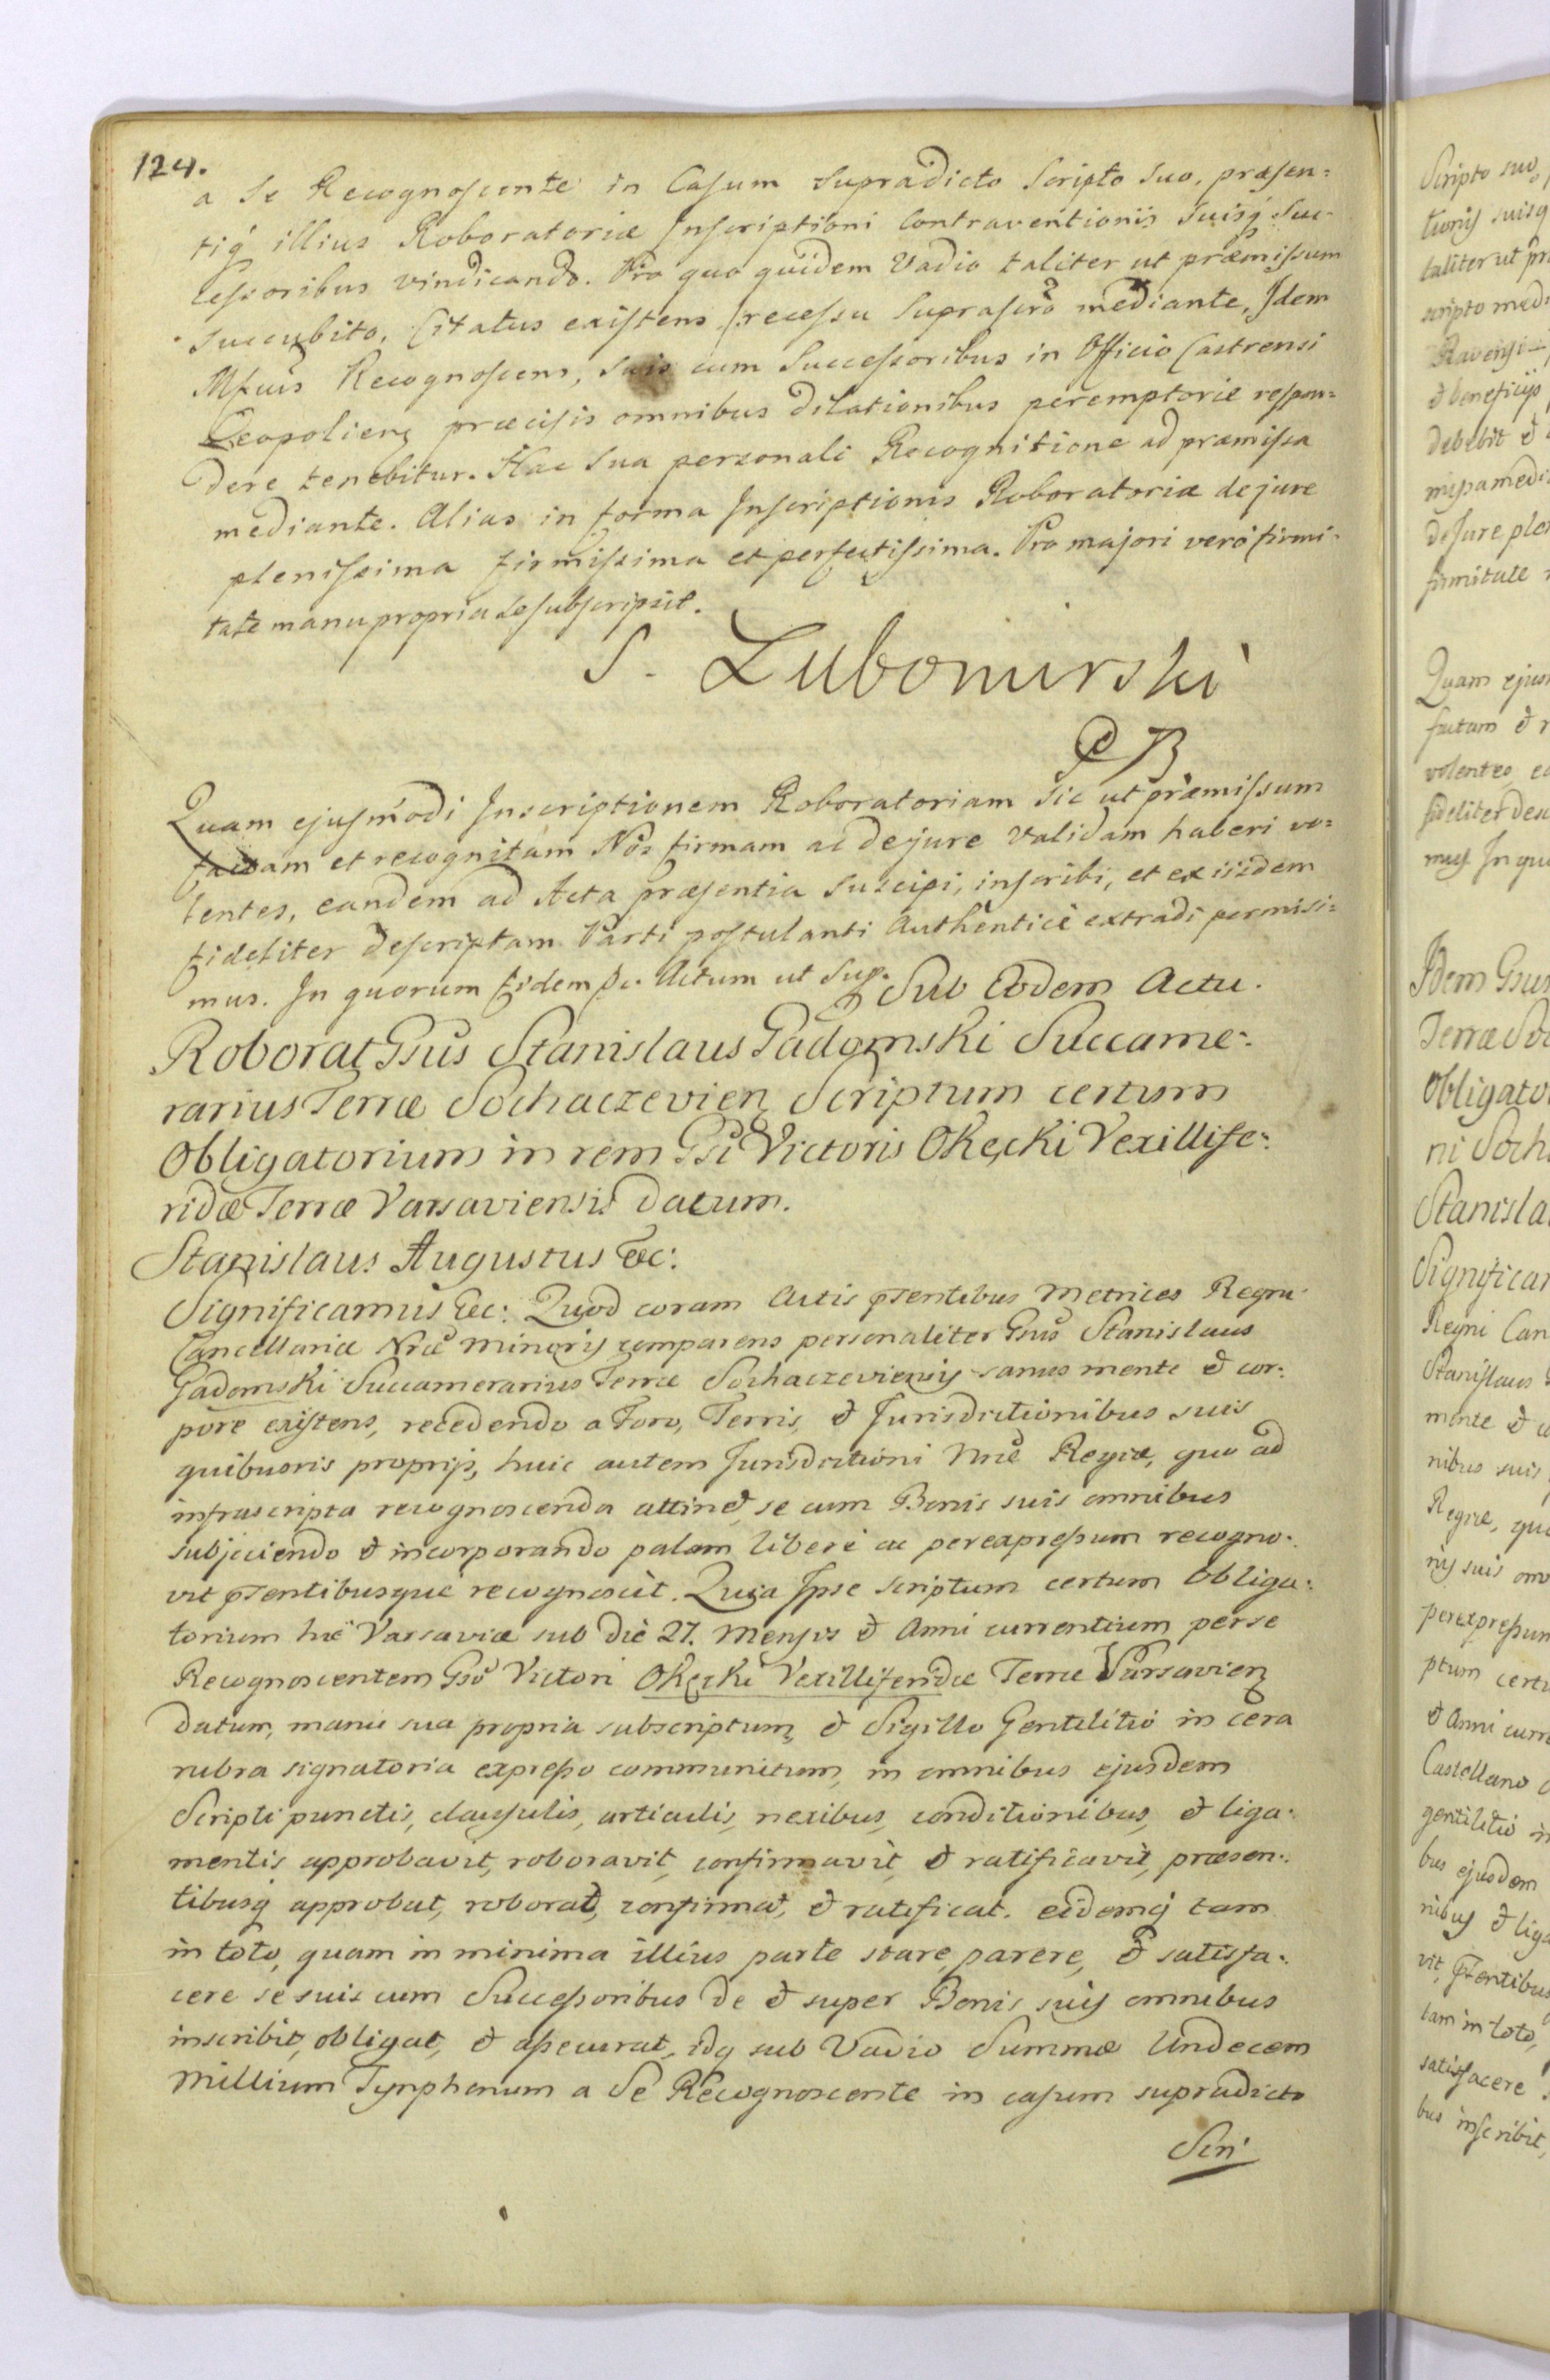 124.
a Se Recognoscente in Casum Supradicto Scripto Suo, præsen=
tiq́ illius Roboratoriæ Inscriptioni Contraventionis Suisq́ Suc-
cessoribus vindicando. Pro quo quidem Vadio taliter ut præmissum
succubito, Citatus existens, recessu Suprascró mediante, Idem
Mfcus Recognoscens, Suis cum Successoribus in Officio Castrensi
Leopolieñ præcisis omnibus dilationibus peremptorie respon=
dere tenebitur. Hac Sua personali Recognitione ad præmissa
mediante. Alias in forma Inscriptionis Roboratoriæ de jure
plenissima firmissima et perfectissima. Pro majori veró firmi-
tate manu propria se subscripsit.
S. Lubomirski
Quam ejusmodi Inscriptionem Roboratoriam Sic ut præmissum
factam et recognitam Nos firmam ac de jure validam haberi vo=
lentes, eandem ad Acta præsentia Suscipi, inscribi, et ex iisdem
fideliter descriptam Parti postulanti Authenticè extradi permisi=
mus. In quorum fidem &c. Actum ut Sup. Sub Eodem Actu.
Roborat Gsus Stanislaus Gadomski Succame-
rarius Terræ Sochaczevień Scriptum certum
Obligatorium in rem Gsi Victoris Okęcki Vexillife-
ridæ Terræ Varsaviensis datum.
Stanislaus Augustus &c:
Significamus &c: Quod coram Actis pŕsentibus Metrices Regni
Cancellariæ Nræ Minoris comparens personaliter Gsus Stanislaus
Gadomski Succamerarius Terræ Sochaczeviensis sanus mente & cor-
pore existens, recedendo a Foro, Terris, & Jurisdictionibus suis
quibusvis proprijs, huic autem Jurisdictioni Nræ Regiæ, quo ad
infrascripta recognoscenda attinet, se cum Bonis suis omnibus
subjiciendo & incorporando palam liberè ac per expressum recogno-
vit pŕsentibusque recognoscit. Quia Ipse scriptum certum Obliga-
torium hic Varsaviæ sub die 27. Mensis & Anni currentium per se
Recognoscentem Gsó Victori Okęcki Vexilliferidæ Terræ Varsavień
datum, manu sua propria subscriptum, & Sigillo Gentilitio in cera
rubra signatoria expresso communitum, in omnibus ejusdem
Scripti punctis, clausulis, articulis, nexibus, conditionibus, & liga-
mentis approbavit, roboravit, confirmavit, & ratificavit, præsen-
tibusq́ approbat, roborat, confirmat, & ratificat. eidemq́ tam
in toto, quam in minima illius parte stare, parere, & satisfa-
cere se suis cum Successoribus de & super Bonis suis omnibus
inscribit, obligat, & assecurat, idq sub Vadio Summæ Undecem
Millium Tynphonum a Se Recognoscente in casum supradicto
Scri-
Scripto suo,
tionis suisq
taliter ut pr
scripto medi
& beneficijs
debebit &
missa medi
de Jure ple
firmitate
Quam ejus
factam & r
volentes ea
fideliter des
mus In qu
Idem Gsus
Terræ So
Obligato
ni Soch
Stanisla
Significa
Regni Can
Stanislaus
mente & c
nibus suis
Regiæ, quo
nis suis om
per expressum
ptum certu
& Anni curre
Castellano
gentilitio in
bus ejusdem
nibus & liga
vit, pŕsentibus
tam in toto,
satisfacere
bus inscribit,